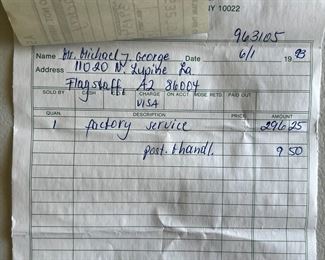 NY 10022
963105
Name Mr. Michael J. George Date 6/1 1993
Address 11020 N. Lupine La.
Flagstaff, AZ 86004
SOLD BY CASH CHARGE ON ACCT. MDSE. RETD. PAID OUT
VISA
QUAN. DESCRIPTION PRICE AMOUNT
1 factory service 296 25
post. & handl. 9 50